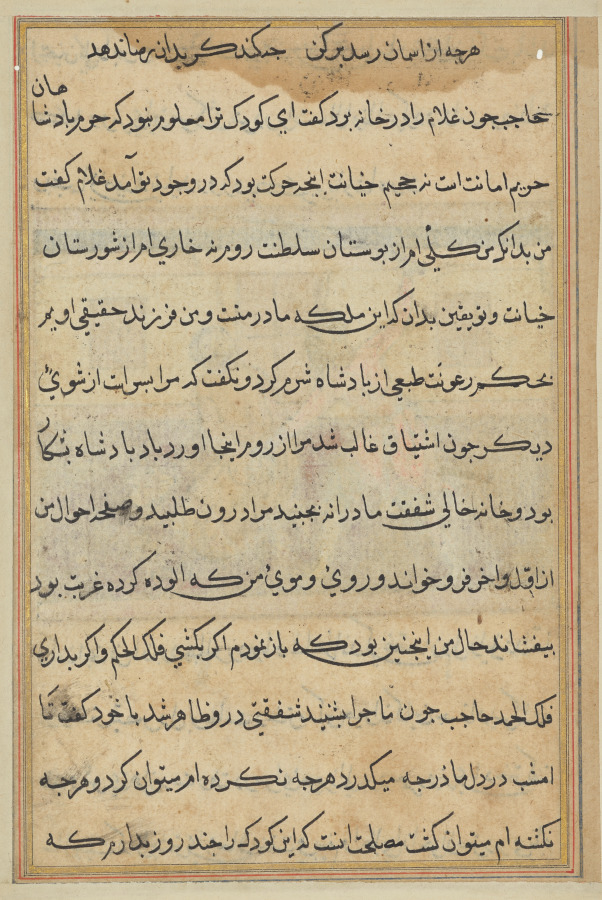 هرجه از اسمان رسد بر کن جه کند کر بدان رضا ندهد
حاجب جون غلام را در خانه برد کفت ای کودک ترا معلوم نبود که حرم بادشاهان
حریم امانت است نه جحیم خیانت اینجه حرکت بود که در وجود تو آمد غلام کفت
من بدانکه من کلی ام از بوستان سلطنت روم نه خاری ام از شورستان
خیانت و تو یقین بدان که این ملکه مادر منست و من فرزند حقیقی اویم
بحکم رعونت طبعی از بادشاه شرم کرد و نکفت که مرا بسر است از شوی
دیکر جون اشتیاق غالب شد مرا از روم اینجا اورد باد بادشاه بشکار
بود و خانه خالی شفقت مادرانه بجنبید مرا درون طلبید و صفحه احوال من
از اول و اخر فرو خواند و روی و موی من که الوده کرده غربت بود
بیفشاند حال من اینجنین بود که باز نمودم اکر بکشی فلک الحکم و اکر بداری
فلک الحمد حاجب جون ماجرا بشنید شفقتی در و ظاهر شد با خود کفت تا
امشب در دل ما ذرجه میکذرد هرجه نکرده ام میتوان کرد و هرجه
نکشته ام میتوان کشت مصلحت اینست که این کودک را جند روز بدارم که